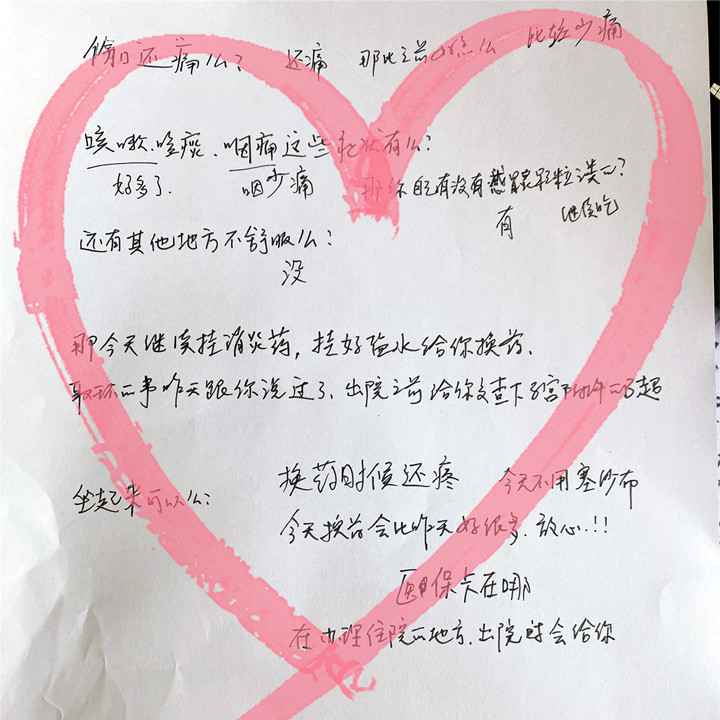 伤口还痛么？ 还痛 那比之前好些么 比较少痛
咳嗽、呛痰、咽痛这些症状有么？
好多了. 咽少痛 那你自己有没有感冒颗粒之类的？
有 继续吃
还有其他地方不舒服么？
没
那今天继续挂消炎药，挂好盐水给你换药.
取环的事昨天跟你说过了. 出院之前给你复查下子宫附件的B超
换药时候还疼 今天不用塞纱布
坐起来可以么？
今天换药会比昨天好很多. 放心..!!
医保卡在哪
在办理住院的地方. 出院时会给你